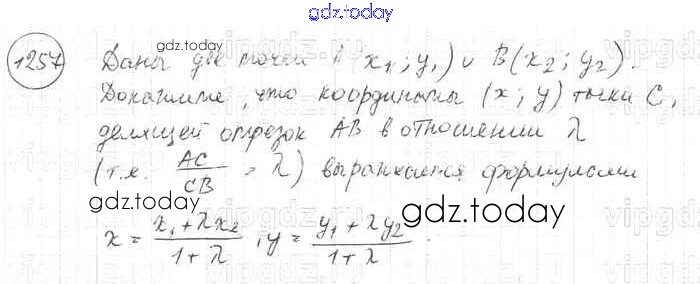 gdz.today
1257 Даны две точки A(x₁; y₁) и B(x₂; y₂).
gdz.today
Докажите, что координаты (x; y) точки C,
делящей отрезок AB в отношении λ
(т.е. AC/CB = λ) выражаются формулами
gdz.today
gdz.today
x = (x₁ + λx₂)/(1 + λ), y = (y₁ + λy₂)/(1 + λ).